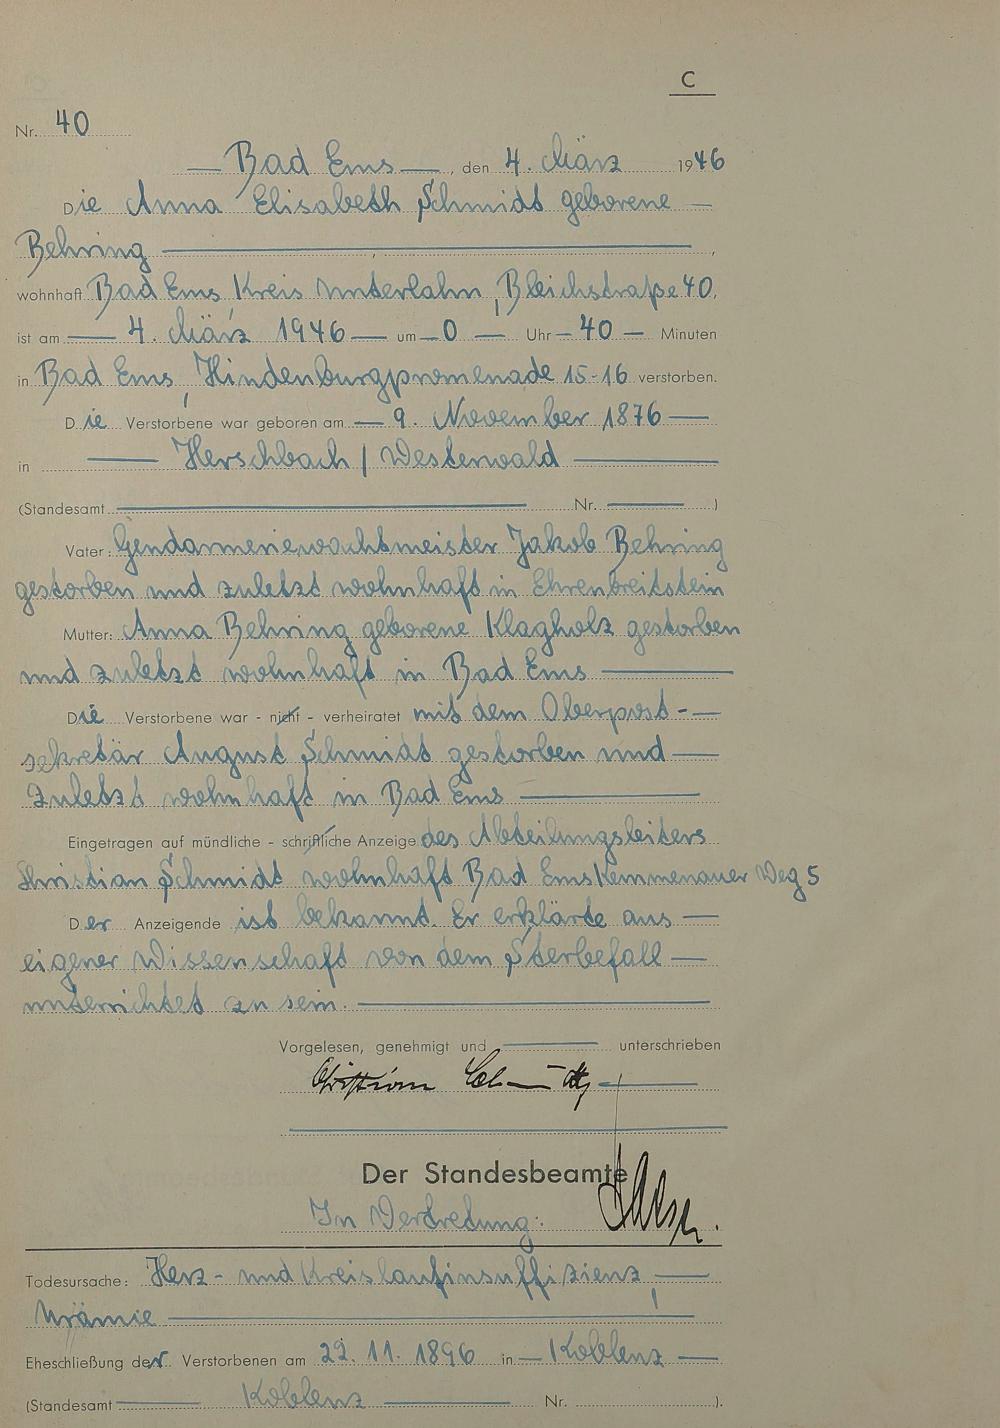 C
Nr. 40
Bad Ems, den 4. März 1946
Die Anna Elisabeth Schmidt geborene
Behring,
wohnhaft Bad Ems Kreis Unterlahn, Bleichstraße 40,
ist am 4. März 1946 um 0 Uhr 40 Minuten
in Bad Ems, Hindenburgpromenade 15-16 verstorben.
Die Verstorbene war geboren am 9. November 1876
in Herschbach / Westerwald
(Standesamt Nr. )
Vater: Gendarmeriewachtmeister Jakob Behring
gestorben und zuletzt wohnhaft in Ehrenbreitstein
Mutter: Anna Behring geborene Klagholz gestorben
und zuletzt wohnhaft in Bad Ems
Die Verstorbene war - nicht - verheiratet mit dem Oberpost-
sekretär August Schmidt gestorben und
zuletzt wohnhaft in Bad Ems
Eingetragen auf mündliche - schriftliche Anzeige des Abteilungsleiters
Christian Schmidt wohnhaft Bad Ems Kemmenauer Weg 5
Der Anzeigende ist bekannt. Er erklärte aus
eigener Wissenschaft von dem Sterbefall
unterrichtet zu sein.
Vorgelesen, genehmigt und unterschrieben
Christian Schmidt
Der Standesbeamte
In Vertretung:
Todesursache: Herz- und Kreislaufinsuffizienz,
Urämie
Eheschließung der Verstorbenen am 22. 11. 1896 in Koblenz
(Standesamt Koblenz Nr. ).